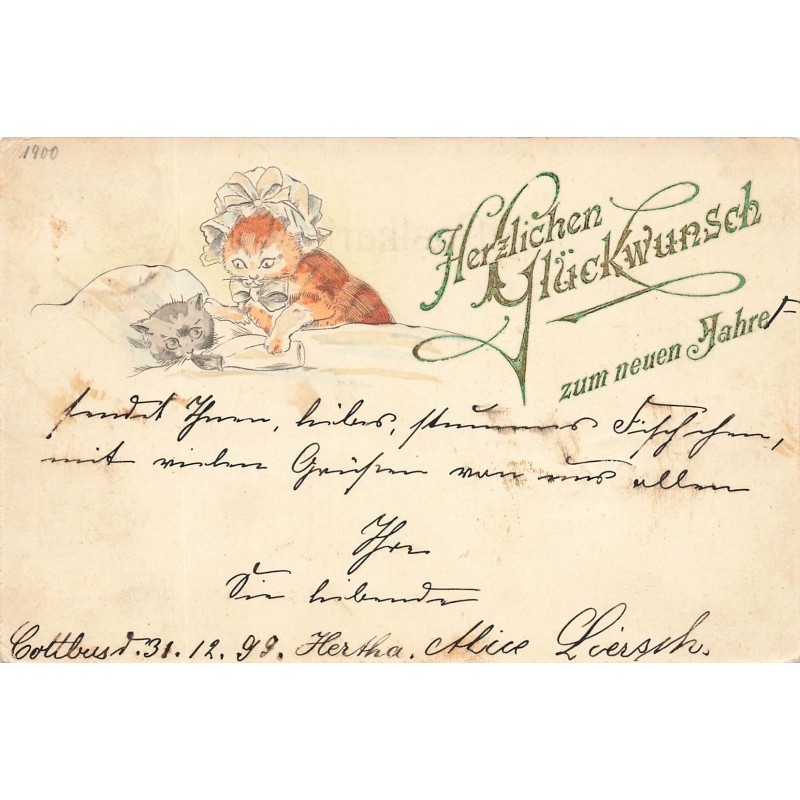 1900
Herzlichen
Glückwunsch
zum neuen Jahre
sendet Ihnen, liebes, stummes Fischchen,
mit vielen Grüßen von uns allen
Ihre
Sie liebende
Cottbus d. 31. 12. 99. Hertha. Alice Liersch.